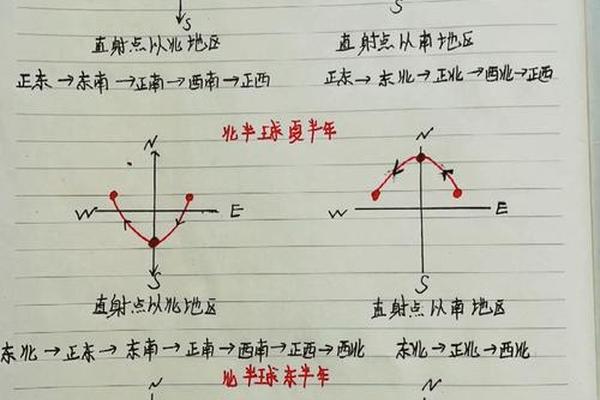 S
S
直射点以北地区
直射点以南地区
正东→东南→正南→西南→正西
正东→东北→正北→西北→正西
北半球夏半年
N
N
W
E
W
E
S
S
直射点以北地区
直射点以南地区
东北→正东→东南→正南→西南→正西→西北
东北→正北→西北
北半球冬半年
N
N